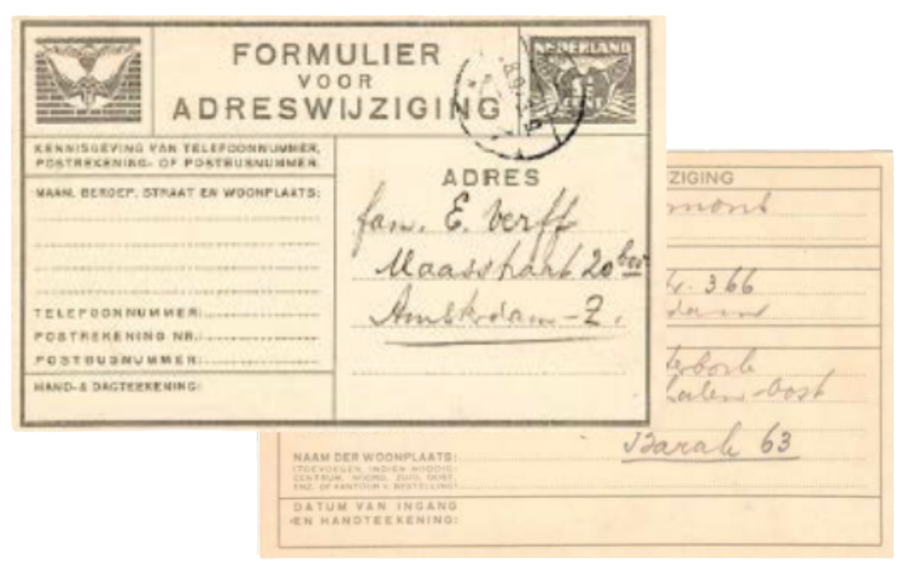 FORMULIER
VOOR
ADRESWIJZIGING
NEDERLAND
1½
CENT
KENNISGEVING VAN TELEFOONNUMMER,
POSTREKENING- OF POSTBUSNUMMER.
NAAM, BEROEP, STRAAT EN WOONPLAATS:
TELEFOONNUMMER:
POSTREKENING NR.:
POSTBUSNUMMER:
HAND- & DAGTEEKENING:
ADRES
fam. E. Verff
Maasstraat 20 bov.
Amsterdam-Z.
ZIGING
mont
r. 366
dam
terbork
halen-Oost
Barak 63
NAAM DER WOONPLAATS:
(TOEVOEGEN, INDIEN NOODIG:
CENTRUM, NOORD, ZUID, OOST,
ENZ. OF KANTOOR V. BESTELLING)
DATUM VAN INGANG
EN HANDTEEKENING: